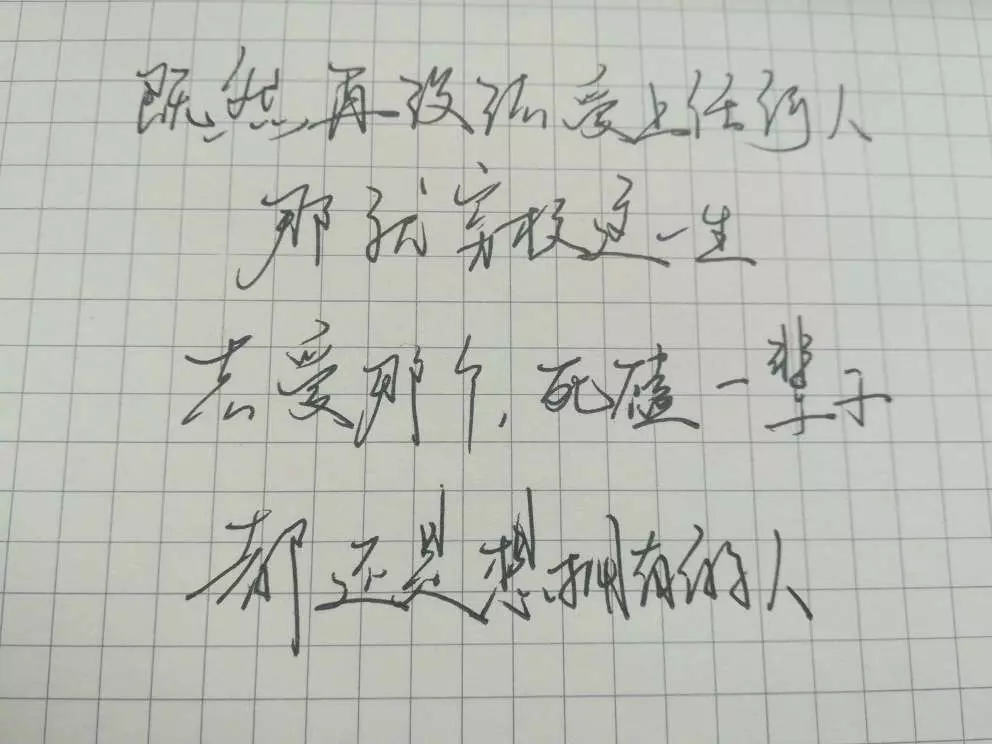 既然再没法爱上任何人
那就穷极这一生
去爱那个,死磕一辈子
都还是想拥有的人